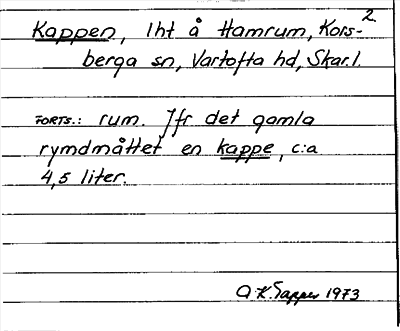 2.
Kappen, lht å Hamrum, Kors-
berga sn, Vartofta hd, Skar.l.
FORTS.: rum. Jfr det gamla
rymdmåttet en kappe, c:a
4,5 liter.
A.K. Tapper 1973